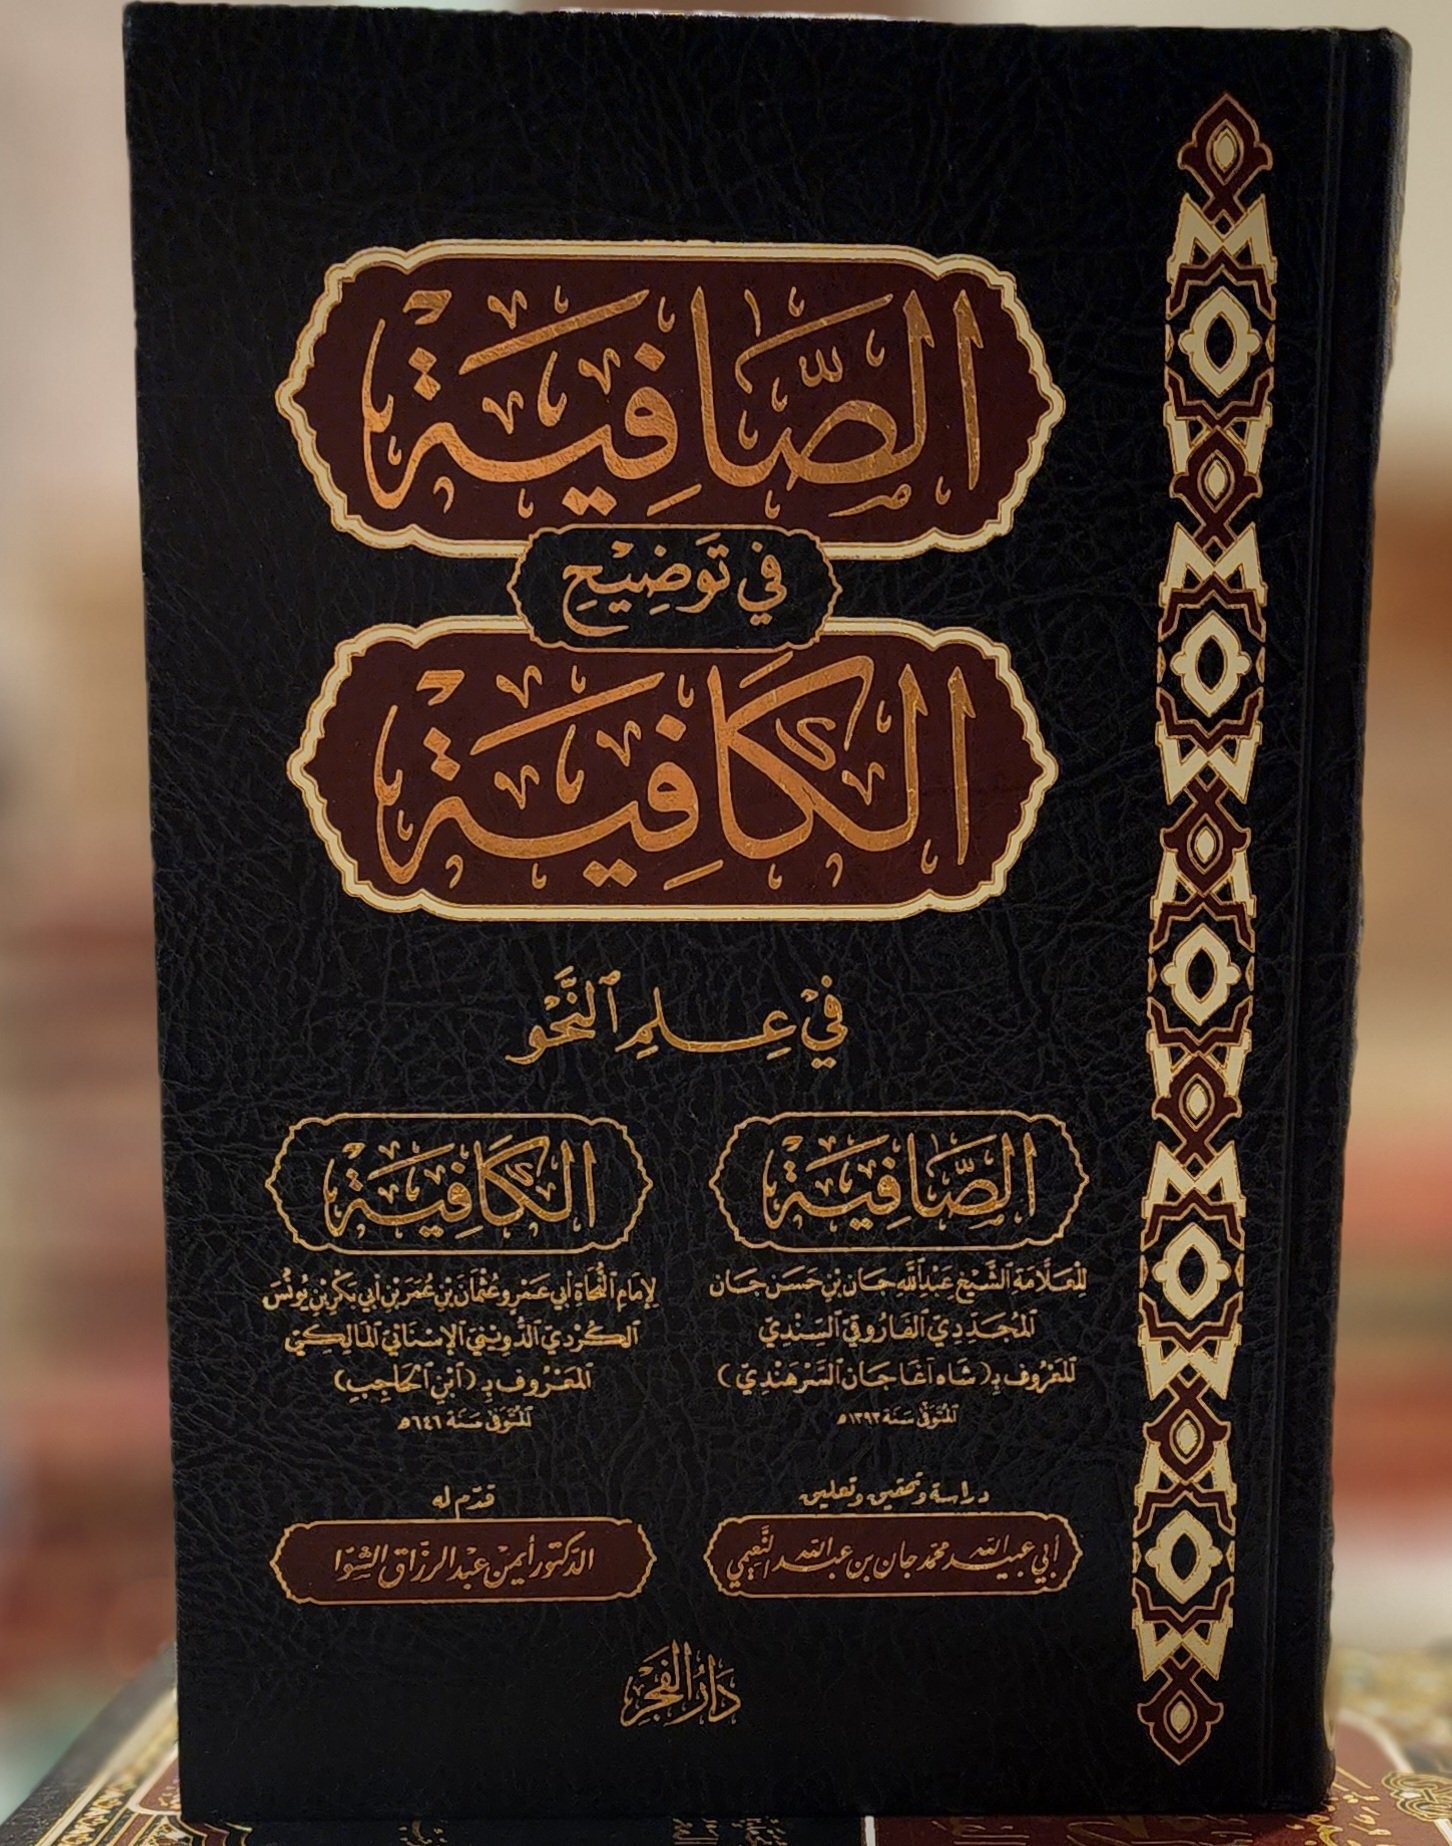 الصَّافِيَة
في تَوَضِيْحِ
الكَافِيَة
فِي عِلمِ النَّحْو
الصَّافِيَة
لِلعَلَّامَةِ الشَّيْخِ عَبْدِ اللَّه جَان بْنِ حَسَن جَان
المُجَدِّدِيّ الفَارُوقِيّ السِّنْدِيّ
المَعْرُوف بِـ (شَاه آغَا جَان السَّرْهَنْدِيّ)
المُتَوَفّى سَنَة ١٣٩٣هـ
الكَافِيَة
لِإمَامِ النُّحَاةِ أبي عَمْرو عُثْمَانَ بْنِ عُمَرَ بْنِ أبي بَكْرِ بْنِ يُونُسَ
الكُرْدِيّ الدَّوِينِيّ الإِسْنَائِيّ المَالِكِيّ
المَعْرُوف بِـ (ابْنِ الحَاجِبِ)
المُتَوَفّى سَنَة ٦٤٦هـ
دراسة وتحقيق وتعليق
أبي عبيد الله محمد جان بن عبد الله النَّعِيمي
قدّم له
الدّكتور أيمن عبد الرزّاق الشوّا
دَارُ الفَجْرِ